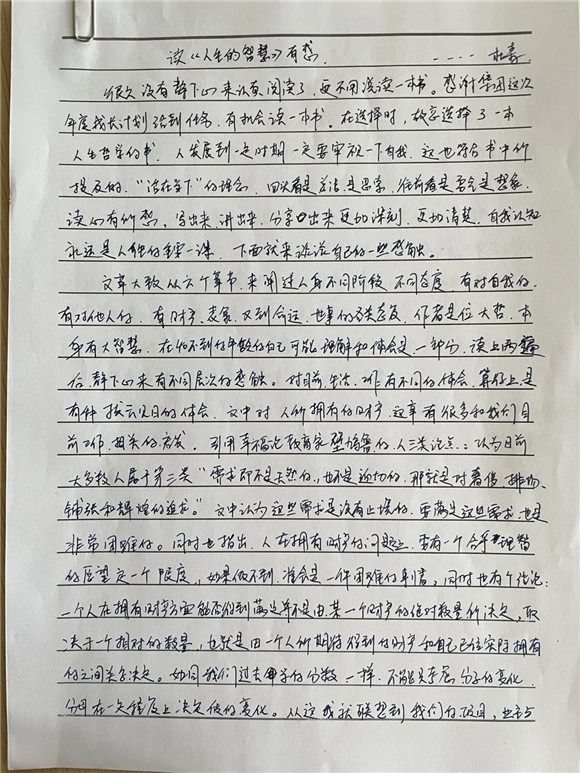 读《人生的智慧》有感. ----杜
很久没有静下心来认真阅读了，更不用说读一本书。感谢集团这次
年度成长计划给到任务，有机会读一本书。在选择时，故意选择了一本
人生哲学的书，人发展到一定时期一定要审视一下自我，这也符合书中所
提及的："活在当下"的理念，回头看是总结是思考，往前看是是想象
读而有所感，写出来，讲出来，分享出来更加深刻，更加清楚，自我认知
永远是人类的第一课，下面就来谈谈自己的一些感触。
文章大致从六个章节，来阐述人身不同阶段，不同态度，有对自我的，
有对他人的，有财产、表象，又到命运、世事的各类态度，作者是位大哲，本
身有大智慧，在的年龄的自己可能理解和体会是一部分，读上两遍
后静下心来有不同层次的感触。对目前生活、工作有不同的体会，算得上是
有种拨云见日的体会，文中对人所拥有的财产，这章有很多和我们目
前工作相关的启发。引用幸福论教育家伊壁鸠鲁的人三类论点：认为目前
大多数人属于第三类"需求即不是天然的，也不是迫切的，那就是对奢侈、排场、
铺张和辉煌的追求。"文中认为这些需求是没有止境的，要满足这些需求也是
非常困难的。同时也指出，人在拥有财产的问题上，要有一个合乎理智
的愿望定一个限度，如果做不到，准会是一件困难的事情，同时也有个结论：
一个人在拥有财产方面能否得到满足并不是由某一个财产的绝对数量所决定，取
决于一个相对的数量，也就是由一个人所期待得到的财产和自己已经实际拥有
的之间关系决定。如同我们过去学的分数一样，不能只看分子的变化，
分母在一定程度上决定值的变化。从这我就联想到我们的项目，业主与